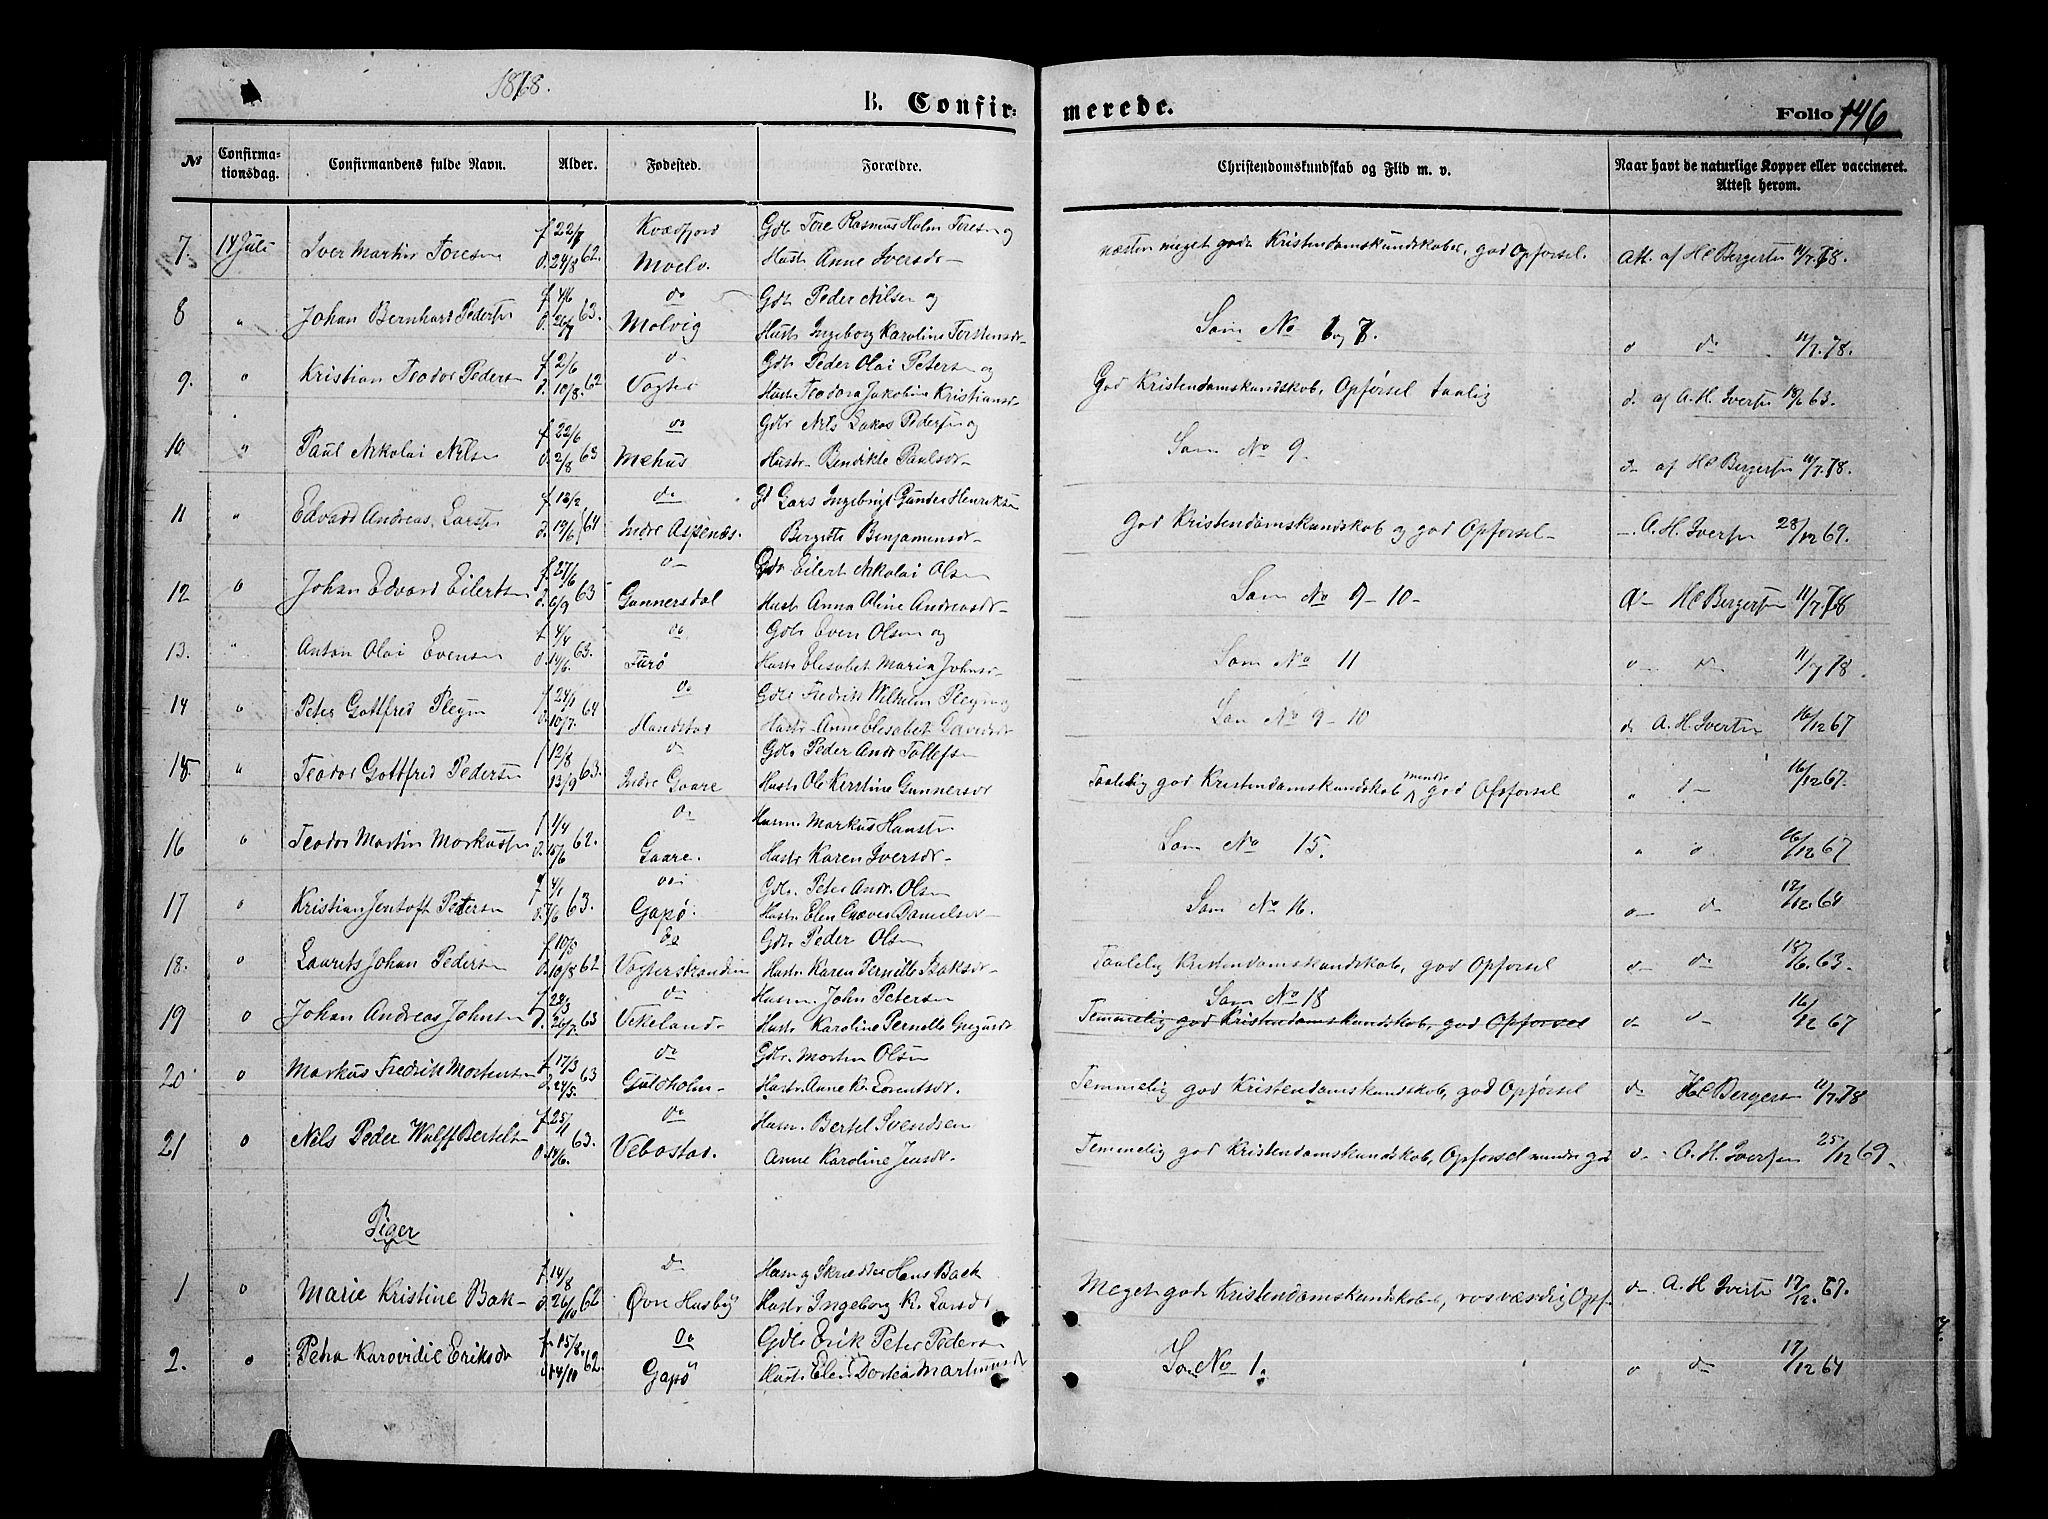 1878.
B. Confirmerede.
Folio 146
No
Confirmationsdag.
Confirmandens fulde Navn.
Alder.
Fødested.
Forældre.
Christendomskundskab og Flid m. v.
Naar havt de naturlige Kopper eller vaccineret. Attest herom.
7. 14 Juli Iver Martin Toresen f. 22/7 d. 24/8 62. Kvædfjord Moelv. Gdb. Tore Rasmus Holm Toresen og
Hustr Anne Iversdr
næsten meget gode Kristendomskundskaber, god Opførsel. Att. af HC Bergersen 11/7.78.
8 " Johan Bernhard Pedersen f. 4/6 d. 26/7 63. do Molvig Gdb Peder Nilsen og
Hustr Ingeborg Karoline Torstensdr
Som No 6 og 7. do 11/7.78.
9. " Kristian Teodor Pedersen f. 2/6 d. 10/8 62 Vogter Gdb Peder Olai Petersen og
Hustr Teodora Jakobine Kristiansdr
God Kristendomskundskab, Opførsel taalig d. af A. H. Iversen 18/6 63.
10. " Paul Nikolai Nilsen f. 22/6 d. 2/8 63 do Mehus Gdbr Nils Pedersen og
Hustr Bendikte Paulsdr
Som No 9. d. af HC Bergersen 11/7.78.
11 " Edvard Andreas Larsen f. 13/2 d. 19/6 64 do Indre Aspenæs. Lars Ingebrigt Henriksen
Bergitte Benjaminsdr
God Kristendomskundskab og god Opførsel A. H. Iversen 28/12 69.
12 " Johan Edvard Eilertsen f. 27/6 d. 6/9 63 Gunnersdal Gdb Eilert Nikolai Olsen
Hustr Anna Oline Andreasdr
Som No 9-10- HC Bergersen 11/7.78
13. " Anton Olai Evensen f. 4/4 d. 14/6. 63. do Furø Gdb Even Olsen og
Hustr Elesabet Maria Johnsdr
Som No 11 do 11/7 78
14 " Peter Gottfred Plegen f. 24/1 d. 10/7. 64 do Gdbr Fredrik Wilhelm Plegen og
Hustr Anne Elesabet
Som No 9-10 d. A. H. Iversen 16/12 67
15 " Teodor Gottfred Pedersen f. 12/8 13/9 63. Indre Gaare Gdb Peder Andr Tollefsen
Hustr Ole Kirstine Gunnersdr
Taalelig god Kristendomskundskab mindre god Opførsel " d 16/12 67.
16 " Teodor Martin Markussen f. 1/4 d. 15/6 62. Do Gaare. Husm Markus Hansen
Hustr Karen Iversdr
Som No 15. " d 16/12 67
17 " Kristian Jentoft Petersen f. 4/1 d. 7/6 63. do Gapø. Gdb. Peter Andr. Olsen
Hustr Elen Danielsdr
Som No 16. d 17/12. 64
18. " Laurits Johan Pedersen d. 10/8 62 do Vogterstranden Gdb Peder Olsen
Hustr Karen Pernille Isaksdr
Taalelig Kristendomskundskab, god Opførsel d 18/6. 63.
19 " Johan Andreas Johnsen f. 28/3 d. 26/7 63 do Vikeland Husm John Petersen
Hustr Karoline Pernille
Som No 18
Temmelig god Kristendomskundskab, god Opførsel d 16/12 67
20 " Markus Fredrik Mortensen f. 17/3 d. 24/5. 63 do Guldholm Gdb. Morten Olsen
Hustr Anne K. Lorentsdr.
Temmelig god Kristendomskundskab, god Opførsel do HC Bergersen 11/7.78
21 " Nils Peder Wulff Bertelsen f. 25/1 d. 14/6. 63. do Vebostad. Husm. Bertel Svendsen
Anne Karoline Jensdr.
Temmelig god Kristendomskundskab, Opførsel mindre god d. A. H. Iversen 25/12 69
Piger
1 " Marie Kristine Bak f. 14/8 d. 26/10 62 Øvre Husby Husm og Skrædder Hans Back
Hustr Ingeborg K. Larsdr
Meget gode Kristendomskundskab, rosværdig Opf. do A. H. Iversen 17/12. 67.
2. " Petra Karovidie Eriksdr f. 15/8. d. 14/10 62. Do Gapø Gdb Erik Peter Pedersen
Hustr Elen Dortea Martinusdr
Som No 1. d 17/12 64